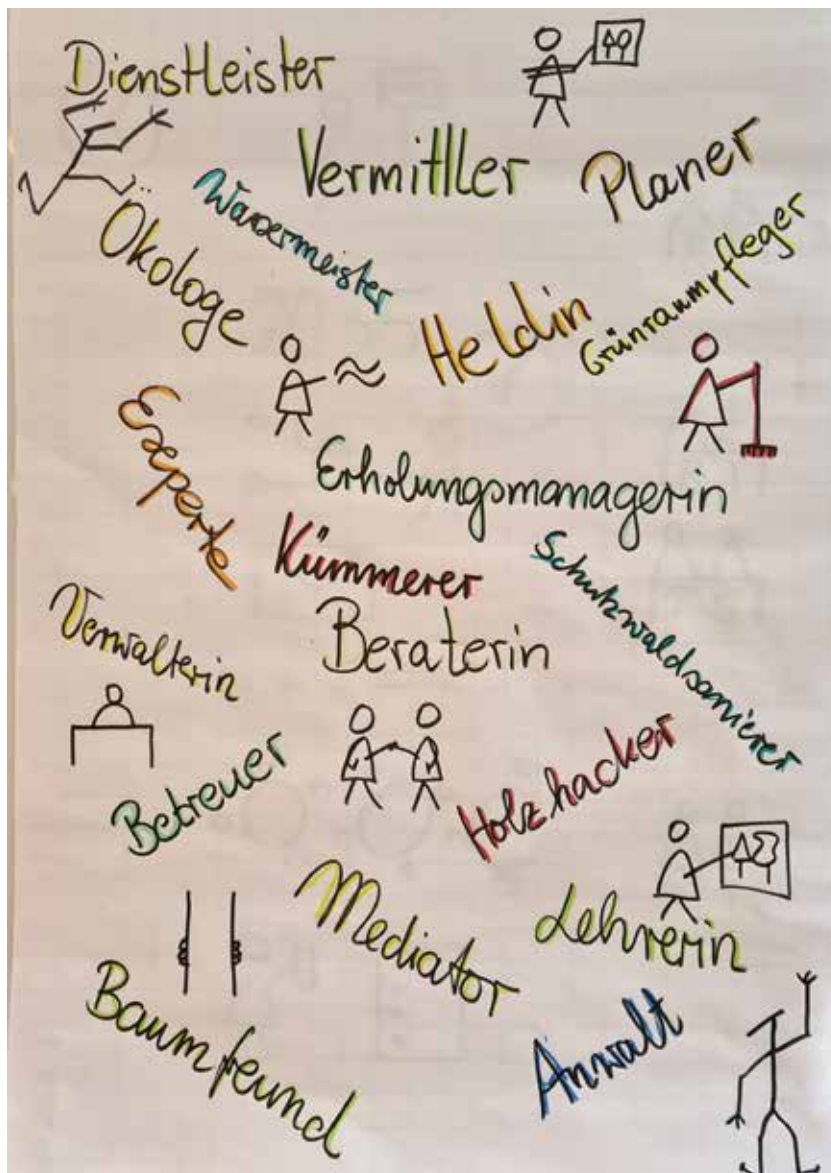 Dienstleister
Vermittler
Planer
Wassermeister
Ökologe
Heldin
Grünraumpfleger
Experte
Erholungsmanagerin
Kümmerer
Schutzwaldsanierer
Verwalterin
Beraterin
Betreuer
Holzhacker
Mediator
Lehrerin
Baumfreund
Anwalt